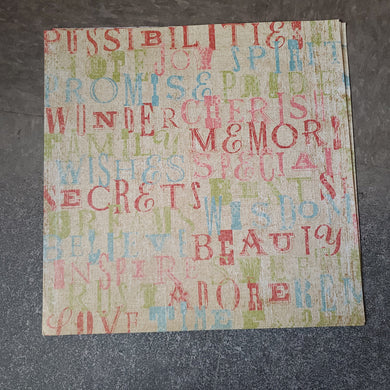 POSSIBILITIE
HOPE JOY SPIRIT
PROMISE PRIDE
WONDER CHERISH
FAMILY MEMORY
WISHES SPECIAL
SECRETS
DREAMS WISDOM
BELIEVE BEAUTY
INSPIRE
TRUST ADORE
LOVE TIME